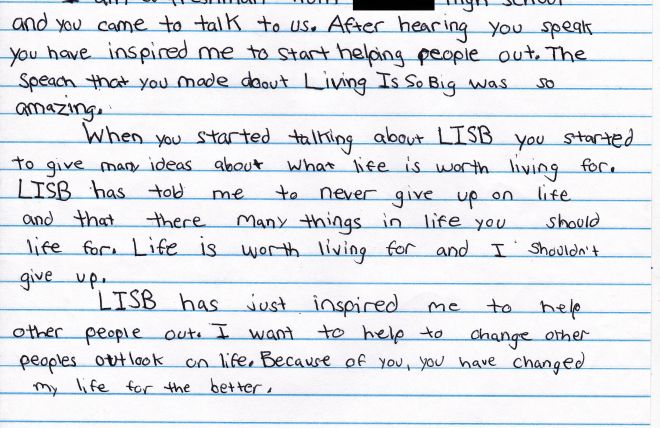 I am a freshman from high school
and you came to talk to us. After hearing you speak
you have inspired me to start helping people out. The
Speach that you made about Living Is So Big was so
amazing.
When you started talking about LISB you started
to give many ideas about what life is worth living for.
LISB has told me to never give up on life
and that there many things in life you should
life for. Life is worth living for and I shouldn't
give up.
LISB has just inspired me to help
other people out. I want to help to change other
peoples outlook on life. Because of you, you have changed
my life for the better.